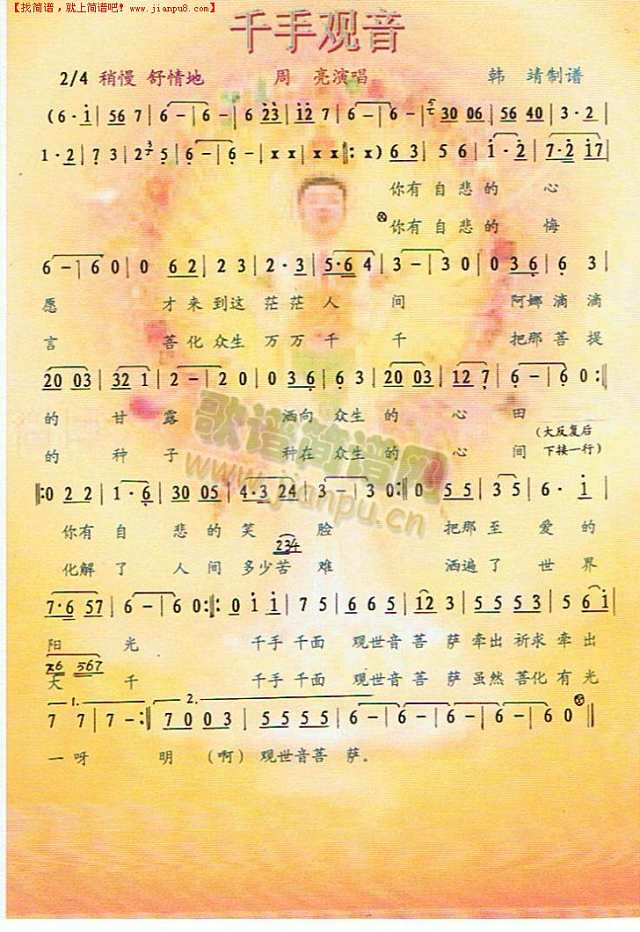 【找简谱，就上简谱吧！www.jianpu8.com】
千手观音
2/4 稍慢 舒情地 周 亮演唱 韩 靖制谱
(6·i|56 7|6-|6-|6 23|127|6-|6-|30 06|30 05|3·2|
1·2|7 3|2 6|6-|6-|x x|x x‖:x)|6 3|5 6|1|7·2 17|
你有 自悲 的 心
你有 自悲 的 悔
6-|60 0|0 62|2 3|2·3|5·6 4|3-|3 0|0 36|6 3|
愿 才来 到这 茫茫 人 间 阿娜 滴滴
言 菩化 众生 万万 千 千 把那 菩提
20 03|32 1|2-|2 0|0 36|6 3|20 03|12 7|6-|6 0:‖
的 甘露 洒向 众生 的 心 田
歌谱简谱网
www.jianpu.cn
(大反复后
下接一行)
的 种子 种在 众生 的 心 间
‖:0 22|1·6|30 05|4·3 24|3-|3 0:‖0 55|3 5|5 5|
你有 自 悲 的 笑 脸 把那 至 爱 的
234
化解 了 人 间 多少 苦 难 洒遍 了 世 界
7·6 57|6-|6 0:‖:0 i i|7 5|665|12 3|555|2 3|5 6 i|
阳 光 千手 千面 观世音 菩 萨 牵出 祈求 牵出
567
大 千 千手 千面 观世音 菩 萨 虽然 菩化 有光
1. 2.
7 7|7-:‖7 00 3|5 5 5 5|6-|6-|6-|6-|60 0‖
一 呀 明 (啊) 观世音菩 萨。